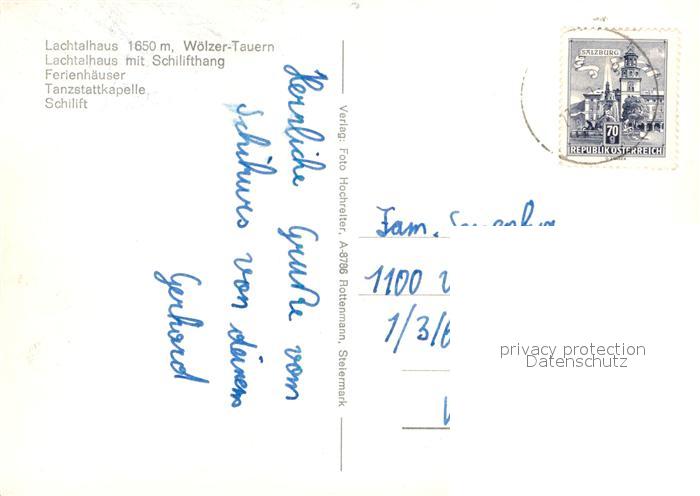 Lachtalhaus 1650 m, Wölzer-Tauern
Lachtalhaus mit Schilifthang
Ferienhäuser
Tanzstattkapelle
Schilift
Herrliche Grüße vom
Schikurs von deinem
Gerhard
Verlag: Foto Hochreiter, A-8786 Rottenmann, Steiermark
SALZBURG
70
g
REPUBLIK ÖSTERREICH
Fam.
1100
1/3/6
privacy protection
Datenschutz